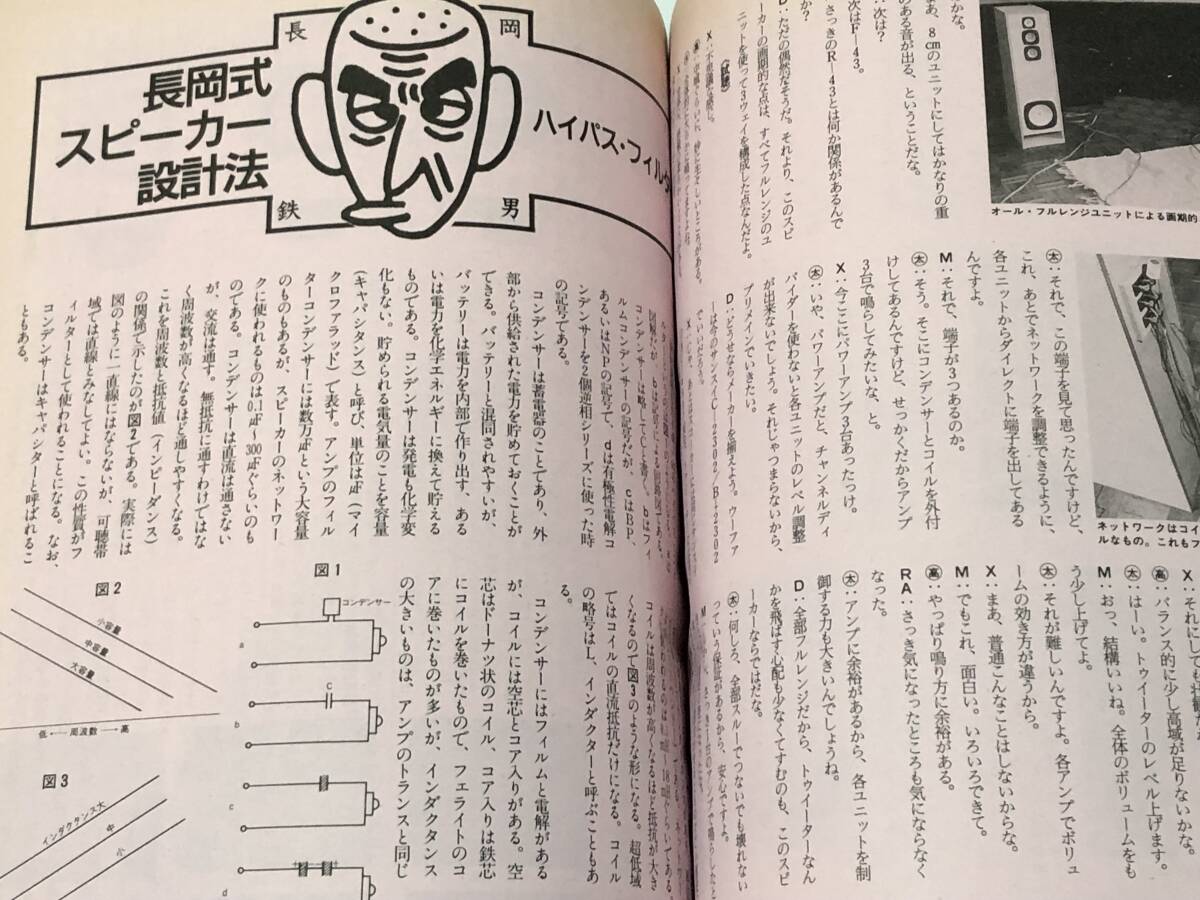 かな。
まあ、8cmのユニットにしてはかなりの重
のある音が出る、ということだな。
次は?
次はF—43。
さっきのR—43とは何か関係があるんで
か?
D：ただの偶然だそうだ。それより、このスピ
ーカーの画期的な点は、すべてフルレンジのユ
ニットを使って3ウェイを構成した点なんだよ。
《試聴》
X：不思議な感じ。
オール・フルレンジユニットによる画期的
太：それで、この端子を見て思ったんですけど、
これ、あとでネットワークを調整できるように、
各ユニットからダイレクトに端子を出してある
んですよ。
M：それで、端子が3つあるのか。
太：そう。そこにコンデンサーとコイルを外付
けしてあるんですけど、せっかくだからアンプ
3台で鳴らしてみたいな、と。
X：今ここにパワーアンプ3台あったっけ。
太：いや、パワーアンプだと、チャンネルディ
バイダーを使わないと各ユニットのレベル調整
が出来ないでしょう。それじゃつまらないから、
プリメインでいきたい。
D：どうせならメーカーを揃えよう。ウーファ
ーは今のサンスイC—2302/B—2302
でいいだろう。
ネットワークはコイ
ルなもの。これもフ
X：それにしても
高：バランス的に少し高域が足りないかな。
太：はーい。トゥイーターのレベル上げます。
M：おっ、結構いいね。全体のボリュームをも
う少し上げてよ。
太：それが難しいんですよ。各アンプでボリュ
ームの効き方が違うから。
X：まあ、普通こんなことはしないからな。
M：でもこれ、面白い。いろいろできて。
高：やっぱり鳴り方に余裕がある。
RA：さっき気になったところも気にならなく
なった。
太：アンプに余裕があるから、各ユニットを制
御する力も大きいんでしょうね。
D：全部フルレンジだから、トゥイーターなん
かを飛ばす心配も少なくてすむのも、このスピ
ーカーならではだな。
太：何しろ、全部スルーでつないでも壊れない
っていう保証があるから、安心ですよ。
長岡鉄男
長岡式
スピーカー
設計法
ハイパス・フィルタ
コンデンサーは略してCと書く。bはフィ
ルムコンデンサーの記号だが、cはBP、
あるいはNPの記号で、dは有極性電解コ
ンデンサーを2個逆相シリーズに使った時
の記号である。
コンデンサーは蓄電器のことであり、外
部から供給された電力を貯めておくことが
できる。バッテリーと混同されやすいが、
バッテリーは電力を内部で作り出す、ある
いは電力を化学エネルギーに換えて貯える
ものである。コンデンサーは発電も化学変
化もない。貯められる電気量のことを容量
(キャパシタンス)と呼び、単位はμF(マイ
クロファラッド)で表す。アンプのフィル
ターコンデンサーには数万μFという大容量
のものもあるが、スピーカーのネットワー
クに使われるものは0.1μF〜300μFぐらいのも
のである。コンデンサーは直流は通さない
が、交流は通す。無抵抗に通すわけではな
く周波数が高くなるほど通しやすくなる。
これを周波数と抵抗値(インピーダンス)
の関係で示したのが図2である。実際には
図のように一直線にはならないが、可聴帯
域では直線とみなしてよい。この性質がフ
ィルターとして使われることになる。なお、
コンデンサーはキャパシターと呼ばれるこ
ともある。
コイルは周波数が高くなるほど抵抗が大き
くなるので図3のような形になる。超低域
ではコイルの直流抵抗だけになる。コイル
の略号はL、インダクターと呼ぶこともあ
る。
コンデンサーにはフィルムと電解がある
が、コイルには空芯とコア入りがある。空
芯はドーナツ状のコイル、コア入りは鉄芯
にコイルを巻いたもので、フェライトのコ
アに巻いたものが多いが、インダクタンス
の大きいものは、アンプのトランスと同じ
図1
コンデンサー
a
C
b
c
d
図2
小容量
中容量
大容量
低←周波数→高
図3
インダクタンス大
中
小